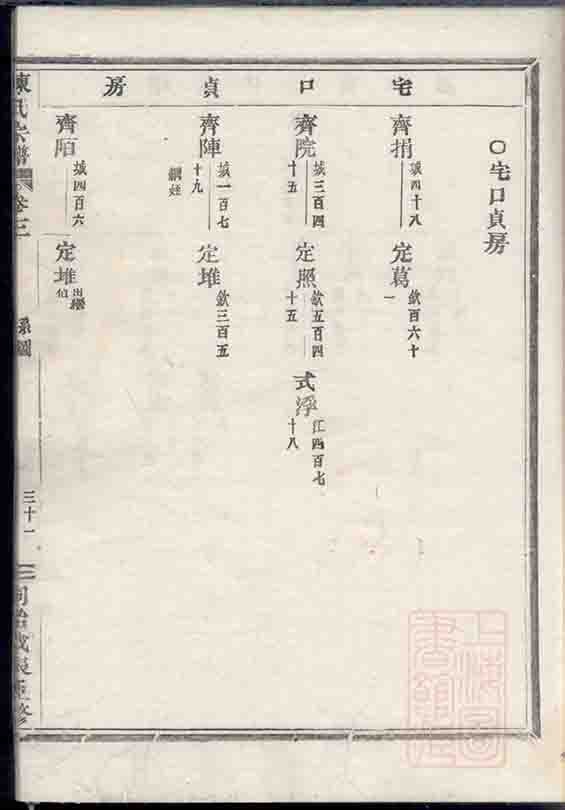 宅口貞房
○宅口貞房
齊捐 城四十八
定葛 欽百六十一
齊院 城三百四十五
定照 欽五百四十五
式浮 江四百七十八
齊陣 城一百七十九 嗣姪
定堆 欽三百五
齊陌 城四百六
定堆 出繼
陳氏宗譜 卷三
系圖
三十一
同治戊辰重修
上海圖書館藏